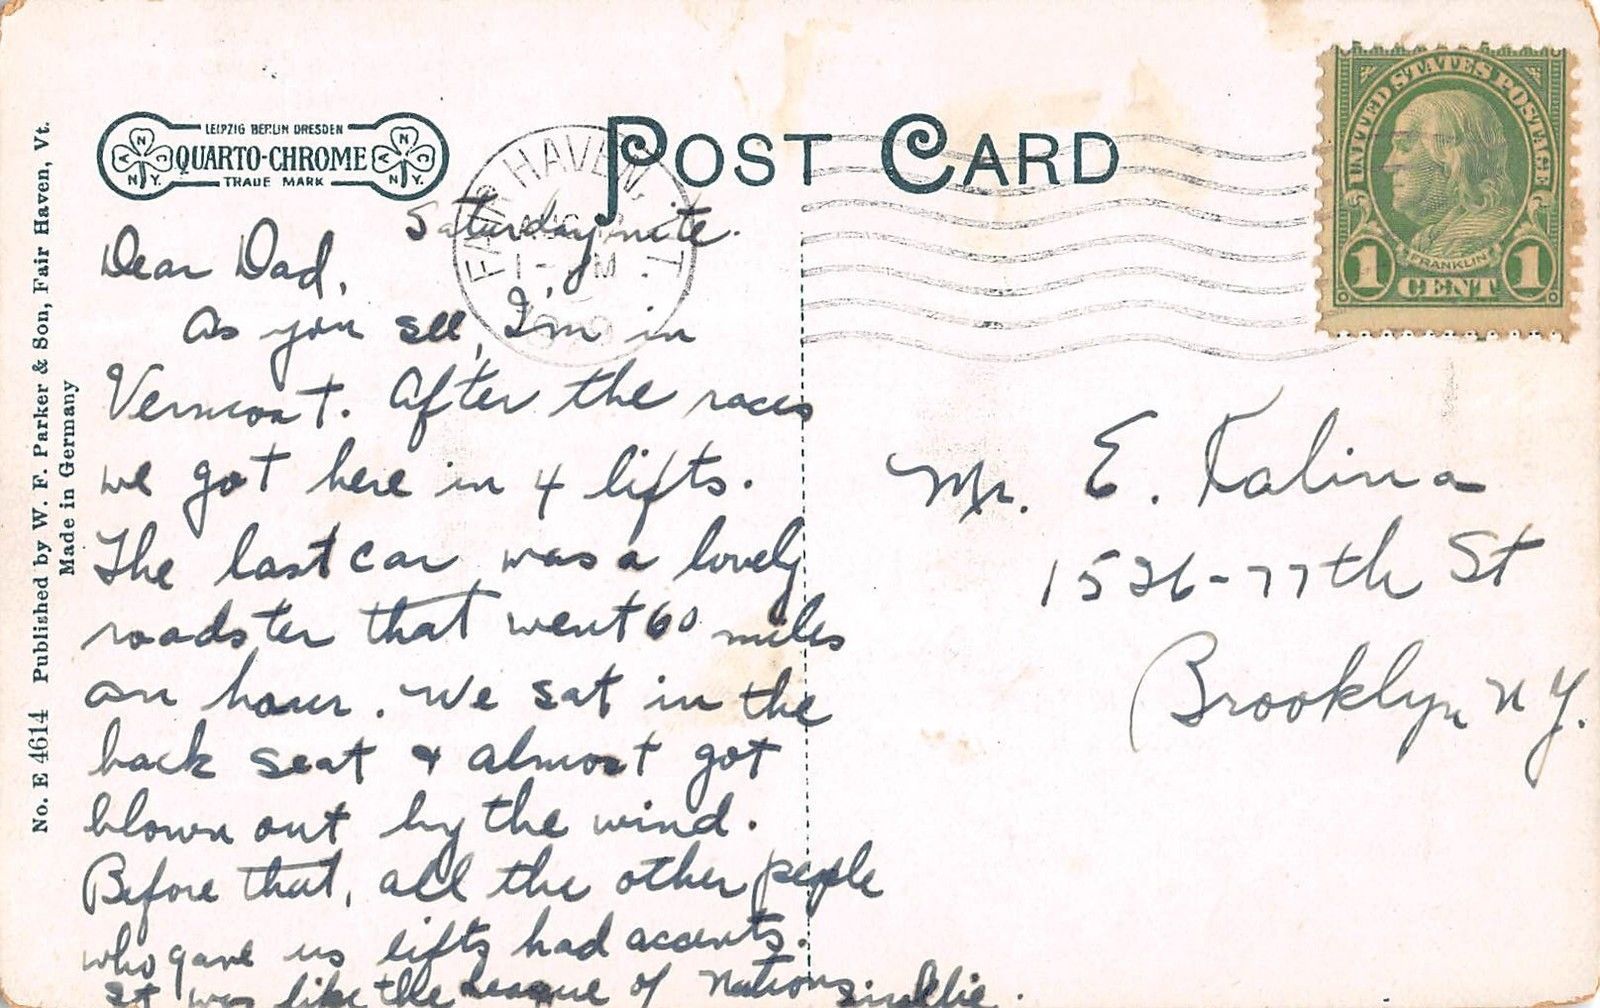 LEIPZIG BERLIN DRESDEN
QUARTO-CHROME
TRADE MARK
A N C N.Y.
A N C N.Y.
POST CARD
FAIR HAVEN, VT.
AUG
1- M
UNITED STATES POSTAGE
FRANKLIN
1 CENT 1
No. E 4614 Published by W. F. Parker & Son, Fair Haven, Vt.
Made in Germany
Saturday nite.
Dear Dad,
As you see, I'm in
Vermont. After the races
we got here in 4 lifts.
The last car was a lovely
roadster that went 60 miles
an hour. We sat in the
back seat & almost got
blown out by the wind.
Before that, all the other people
who gave us lifts had accents.
It was like the League of Nations
Mr. E. Kalina
1526-77th St
Brooklyn N.Y.